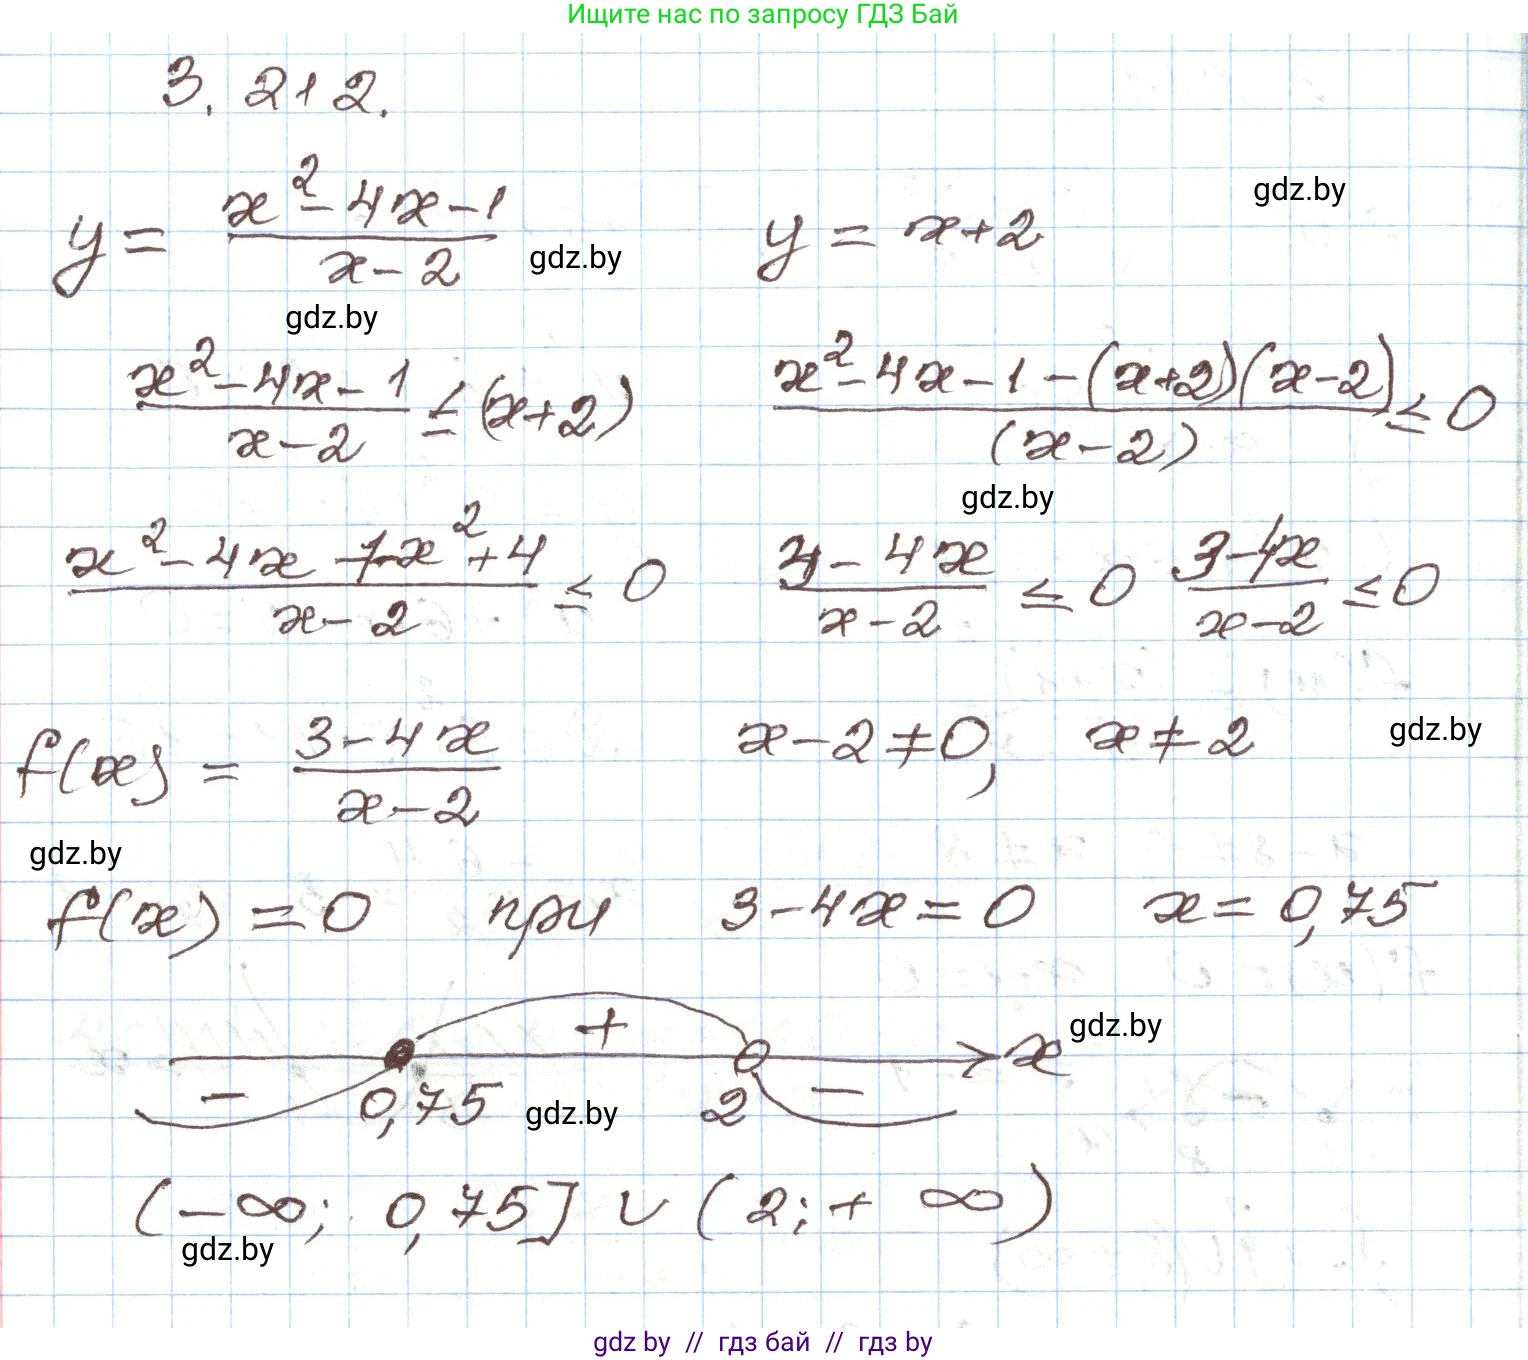 Ищите нас по запросу ГДЗ Бай
3.212.
y = (x² - 4x - 1)/(x - 2)   y = x + 2
gdz.by gdz.by
gdz.by
(x² - 4x - 1)/(x - 2) ≤ (x + 2)   (x² - 4x - 1 - (x+2)(x-2))/((x - 2)) ≤ 0
gdz.by
(x² - 4x - 1 - x² + 4)/(x - 2) ≤ 0   (3 - 4x)/(x - 2) ≤ 0   (3 - 4x)/(x - 2) ≤ 0
f(x) = (3 - 4x)/(x - 2)   x - 2 ≠ 0,   x ≠ 2
gdz.by
gdz.by
f(x) = 0 при 3 - 4x = 0   x = 0,75
+ x gdz.by
- 0,75 gdz.by 2 -
(-∞; 0,75] ∪ (2; +∞)
gdz.by
gdz by // гдз бай // гдз by